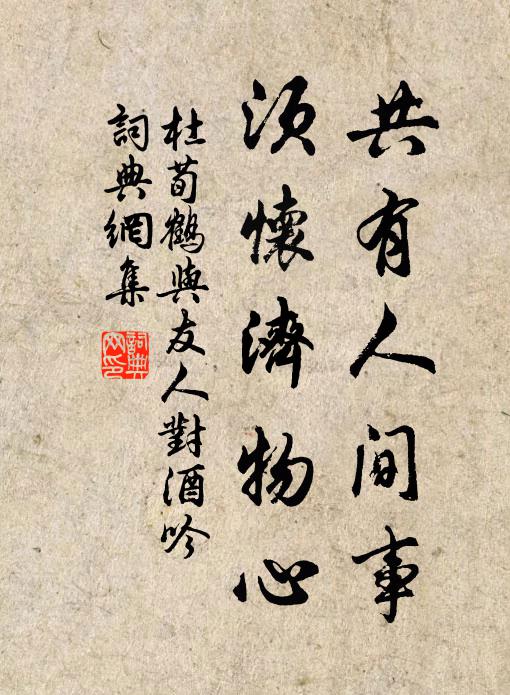 共有人間事
須懷濟物心
杜荀鶴與友人對酒吟
詞典網集
詞典網印